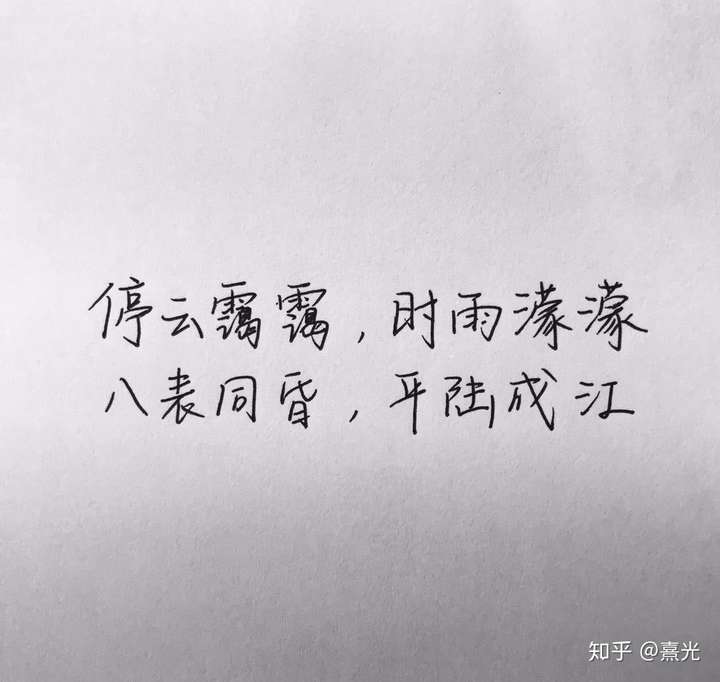 停云霭霭，时雨濛濛
八表同昏，平陆成江
知乎 @熹光